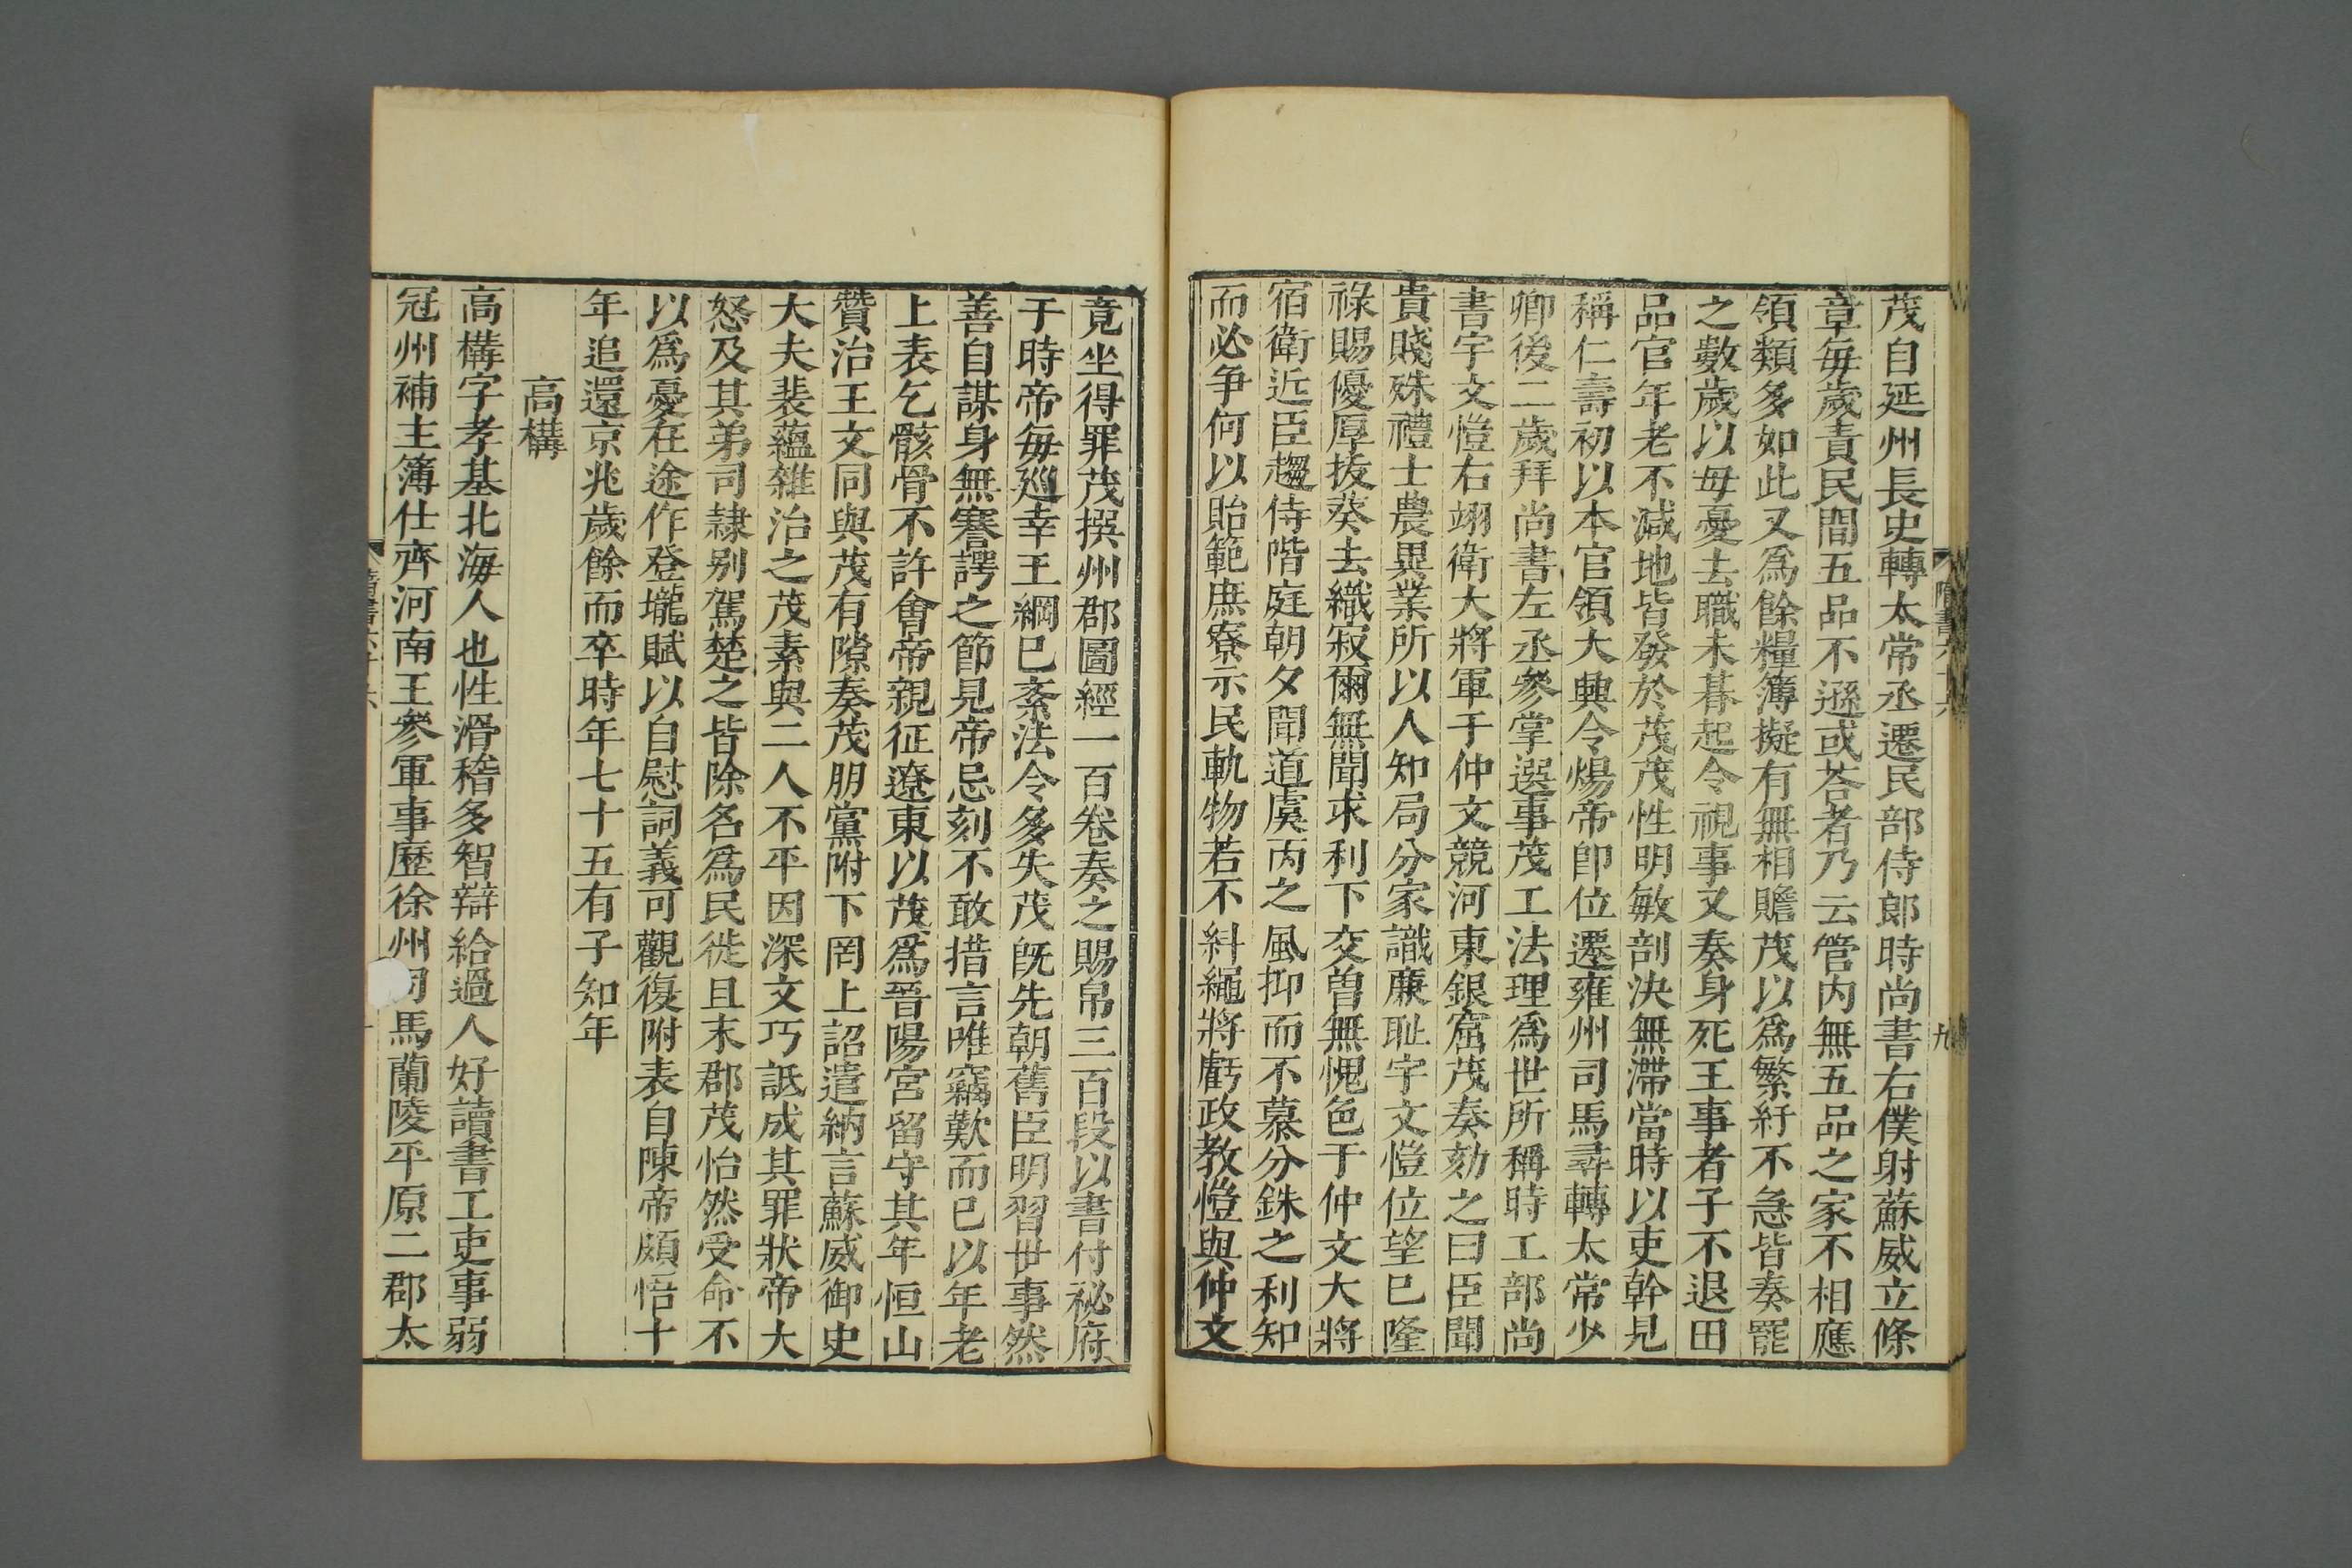 茂自延州長史轉太常丞遷民部侍郎時尚書右僕射蘇威立條
章每歲責民間五品不遜或荅者乃云管內無五品之家不相應
領類多如此又爲餘糧簿擬有無相贍茂以爲繁紆不急皆奏罷
之數歲以母憂去職未朞起令視事又奏身死王事者子不退田
品官年老不減地皆發於茂茂性明敏剖決無滯當時以吏幹見
稱仁壽初以本官領大興令煬帝卽位遷雍州司馬尋轉太常少
卿後二歲拜尚書左丞參掌選事茂工法理爲世所稱時工部尚
書宇文愷右翊衛大將軍于仲文競河東銀窟茂奏劾之曰臣聞
貴賤殊禮士農異業所以人知局分家識廉耻宇文愷位望已隆
祿賜優厚拔葵去織寂爾無聞求利下交曽無愧色于仲文大將
宿衛近臣趨侍階庭朝夕聞道虞芮之風抑而不慕分銖之利知
而必争何以貽範庶寮示民軌物若不糾繩將虧政教愷與仲文
竟坐得罪茂撰州郡圖經一百卷奏之賜帛三百段以書付祕府
于時帝每巡幸王綱已紊法令多失茂旣先朝舊臣明習世事然
善自謀身無謇諤之節見帝忌刻不敢措言唯竊歎而已以年老
上表乞骸骨不許會帝親征遼東以茂爲晉陽宮留守其年恒山
贊治王文同與茂有隙奏茂朋黨附下罔上詔遣納言蘇威御史
大夫裴蘊雜治之茂素與二人不平因深文巧詆成其罪狀帝大
怒及其弟司隷别駕楚之皆除名爲民徙且末郡茂怡然受命不
以爲憂在途作登壠賦以自慰詞義可觀復附表自陳帝頗悟十
年追還京兆歲餘而卒時年七十五有子知年
高構
高構字孝基北海人也性滑稽多智辯給過人好讀書工吏事弱
冠州補主簿仕齊河南王參軍事歷徐州司馬蘭陵平原二郡太
隋書六十六
九